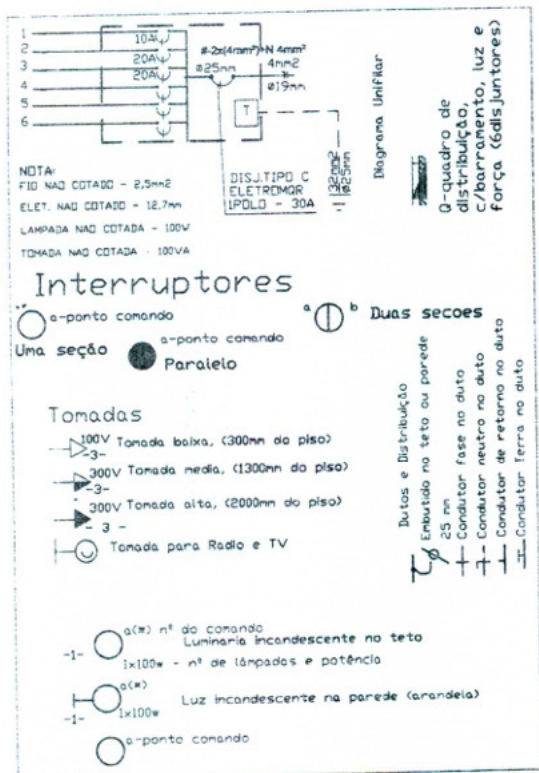 1
2
3
4
5
6
10A
20A
20A
#-2x(4mm²)+N 4mm²
ø25mm
4mm2
ø19mm
T
32mm2
ø25mm
Diagrama Unifilar
Q-quadro de
distribuição,
c/barramento, luz e
força (6disjuntores)
NOTA:
FIO NAO COTADO - 2,5mm2
ELET. NAO COTADO - 12.7mm
LAMPADA NAO COTADA - 100W
TOMADA NAO COTADA - 100VA
DISJ.TIPO C
ELETROMQR
1POLO - 30A
Interruptores
a-ponto comando
Uma seção
a-ponto comando
Paralelo
a
b
Duas secoes
Tomadas
100V Tomada baixa, (300mm do piso)
-3-
300V Tomada media, (1300mm do piso)
-3-
300V Tomada alta, (2000mm do piso)
- 3 -
Tomada para Radio e TV
Dutos e Distribuição
Embutido no teto ou parede
ø 25 mm
Condutor fase no duto
Condutor neutro no duto
Condutor de retorno no duto
Condutor Terra no duto
a(*) nº do comando
Luminaria incandescente no teto
-1-
1x100w - nº de lâmpadas e potência
a(*)
Luz incandescente na parede (arandela)
-1-
1x100w
a-ponto comando